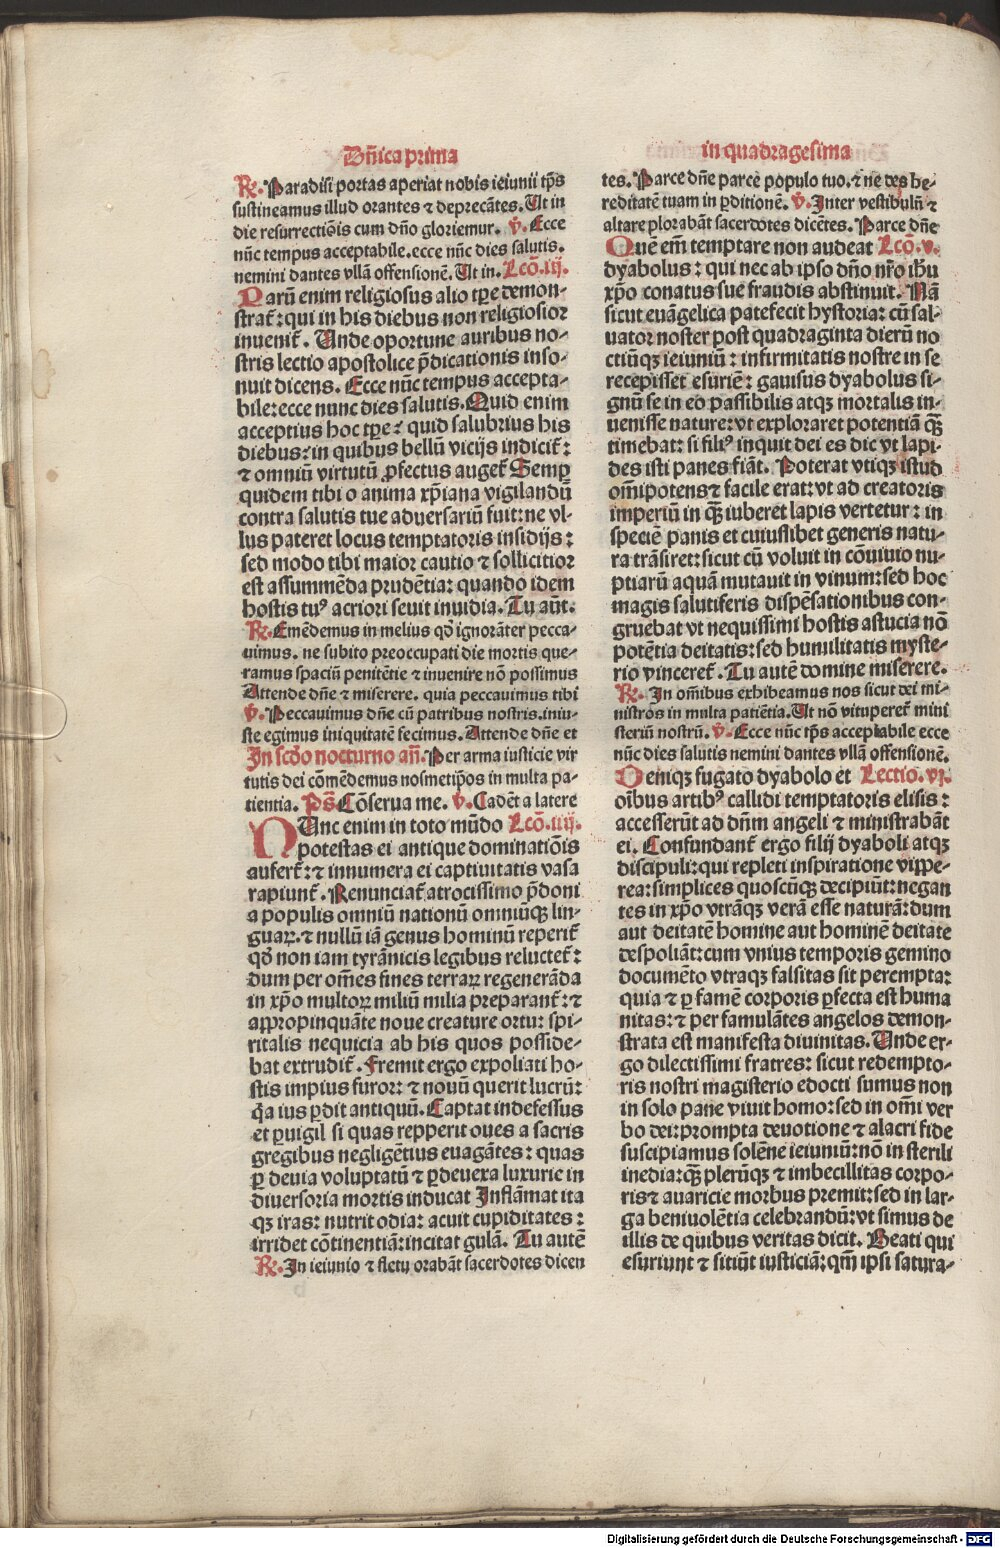 Dn̄ica prima
in quadragesima
℟. Paradisi portas aperiat nobis ieiunii tp̄s
sustineamus illud orantes ⁊ deprecātes. Ut in
die resurrectiōis cum dn̄o gloriemur. ℣. Ecce
nūc tempus acceptabile. ecce nūc dies salutis.
nemini dantes vllā offensionē. Ut in. Lcō. iij.
Parū enim religiosus alio tp̄e demon⸗
strat̄: qui in his diebus non religiosior
inuenit̄. Unde oportune auribus no⸗
stris lectio apostolice p̄dicationis inso⸗
nuit dicens. Ecce nūc tempus accepta⸗
bile: ecce nunc dies salutis. Quid enim
acceptius hoc tp̄e: quid salubrius his
diebus: in quibus bellū vicijs indicit̄:
⁊ omniū virtutū ꝓfectus auget̄ Semꝑ
quidem tibi o anima xp̄iana vigilandū
contra salutis tue aduersariū fuit: ne vl⸗
lus pateret locus temptatoris insidijs:
sed modo tibi maior cautio ⁊ sollicitior
est assummēda prudētia: quando idem
hostis tuꝰ acriori seuit inuidia. Tu aūt.
℟. Emēdemus in melius qd̄ ignorāter pecca⸗
uimus. ne subito preoccupati die mortis que⸗
ramus spaciū penitētie ⁊ inuenire nō possimus
Attende dn̄e ⁊ miserere. quia peccauimus tibi
℣. Peccauimus dn̄e cū patribus nostris. iniu⸗
ste egimus iniquitatē fecimus. Attende dn̄e et
In scd̄o nocturno an̄. Per arma iusticie vir
tutis dei cōmēdemus nosmetip̄os in multa pa⸗
tientia. Ps̄. Cōserua me. ℣. Cadēt a latere
NUnc enim in toto mūdo Lcō. iiij.
potestas ei antique dominatiōis
aufert̄: ⁊ innumera ei captiuitatis vasa
rapiunt̄. Renunciat̄ atrocissimo p̄doni
a populis omniū nationū omniūqꝫ lin⸗
guaꝝ. ⁊ nullū iā genus hominū reperit̄
qd̄ non iam tyrānicis legibus reluctet̄:
dum per om̄es fines terraꝝ regenerāda
in xp̄o multoꝝ miliū milia preparant̄: ⁊
appropinquāte noue creature ortu: spi⸗
ritalis nequicia ab his quos posside⸗
bat extrudit̄. Fremit ergo expoliati ho⸗
stis impius furor: ⁊ nouū querit lucrū:
q̄a ius ꝑdit antiquū. Captat indefessus
et ꝑuigil si quas repperit oues a sacris
gregibus negligētius euagātes: quas
ꝑ deuia voluptatū ⁊ ꝑ deuexa luxurie in
diuersoria mortis inducat Inflāmat ita
qꝫ iras: nutrit odia: acuit cupiditates:
irridet cōtinentiā: incitat gulā. Tu autē
℟. In ieiunio ⁊ fletu orabāt sacerdotes dicen
tes. Parce dn̄e parce populo tuo. ⁊ ne des he⸗
reditatē tuam in ꝑditionē. ℣. Inter vestibulū ⁊
altare plorabāt sacerdotes dicētes. Parce dn̄e
Quē em̄ temptare non audeat Lcō. v.
dyabolus: qui nec ab ipso dn̄o nr̄o ihū
xp̄o conatus sue fraudis abstinuit. Nā
sicut euāgelica patefecit hystoria: cū sal⸗
uator noster post quadraginta dierū no
ctiūqꝫ ieiuniū: infirmitatis nostre in se
recepisset esuriē: gauisus dyabolus si⸗
gnū se in eo passibilis atqꝫ mortalis in⸗
uenisse nature: vt exploraret potentiā quā
timebat: si filiꝰ inquit dei es dic vt lapi⸗
des isti panes fiāt. Poterat vtiqꝫ istud
om̄ipotens ⁊ facile erat: vt ad creatoris
imperiū in quā iuberet lapis vertetur: in
speciē panis et cuiuslibet generis natu⸗
ra trāsiret: sicut cū voluit in cōuiuio nu⸗
ptiarū aquā mutauit in vinum: sed hoc
magis salutiferis dispēsationibus con⸗
gruebat vt nequissimi hostis astucia nō
potētia deitatis: sed humilitatis myste⸗
rio vinceret̄. Tu autē domine miserere.
℟. In om̄ibus exhibeamus nos sicut dei mi⸗
nistros in multa patiētia. Ut nō vituperet̄ mini
steriū nostrū. ℣. Ecce nūc tp̄s acceptabile ecce
nūc dies salutis nemini dantes vllā offensionē.
Deniqꝫ fugato dyabolo et Lectio. vj.
oībus artibꝰ callidi temptatoris elisis:
accesserūt ad dn̄m angeli ⁊ ministrabāt
ei. Confundant̄ ergo filij dyaboli atqꝫ
discipuli: qui repleti inspiratione vippe⸗
rea: simplices quoscūqꝫ decipiūt: negan
tes in xp̄o vtrāqꝫ verā esse naturā: dum
aut deitatē homine aut hominē deitate
despoliāt: cum vnius temporis gemino
documēto vtraqꝫ falsitas sit perempta:
quia ⁊ ꝑ famē corporis ꝑfecta est huma
nitas: ⁊ per famulātes angelos demon⸗
strata est manifesta diuinitas. Unde er⸗
go dilectissimi fratres: sicut redempto⸗
ris nostri magisterio edocti sumus non
in solo pane viuit homo: sed in om̄i ver
bo dei: prompta deuotione ⁊ alacri fide
suscipiamus solēne ieiuniū: nō in sterili
inedia: quā plerūqꝫ ⁊ imbecillitas corpo⸗
ris ⁊ auaricie morbus premit: sed in lar⸗
ga beniuolētia celebrandū: vt simus de
illis de quibus veritas dicit. Beati qui
esuriunt ⁊ sitiūt iusticiā: qm̄ ipsi satura⸗
Digitalisierung gefördert durch die Deutsche Forschungsgemeinschaft - DFG